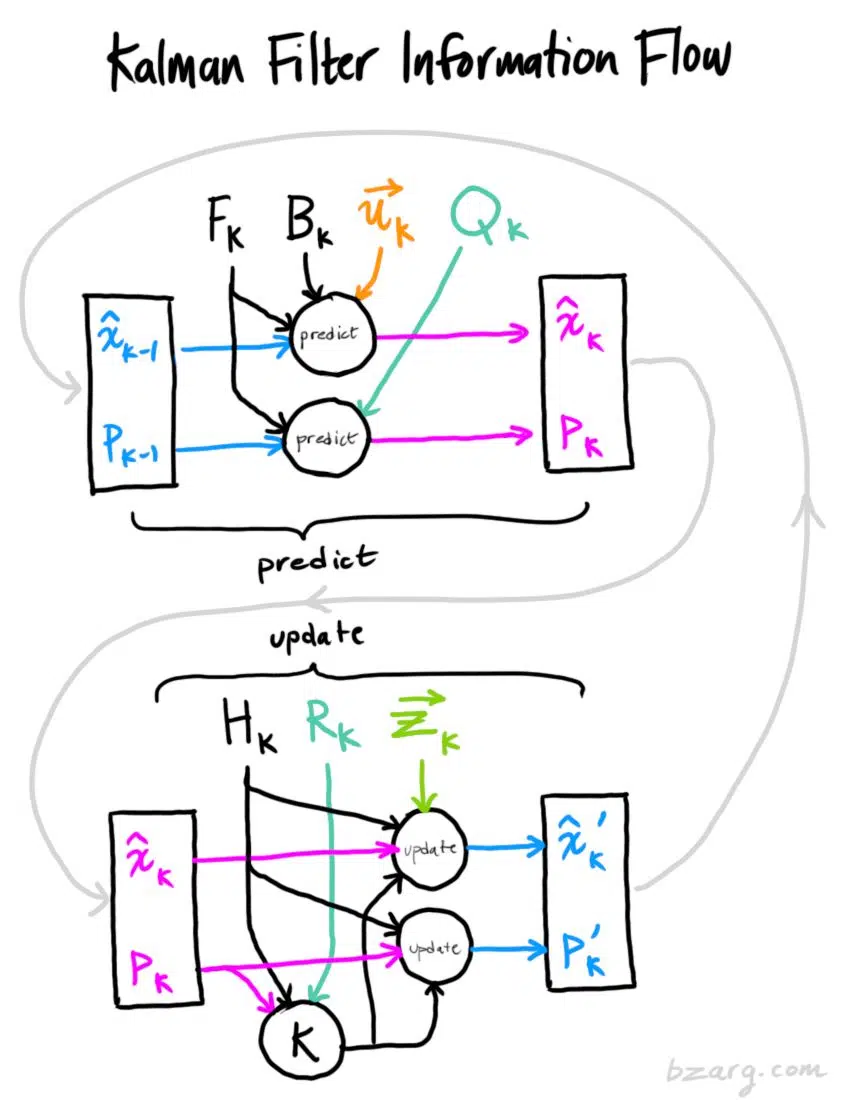 Kalman Filter Information Flow
F_k B_k u_k Q_k
x̂_k-1 predict x̂_k
P_k-1 predict P_k
predict
update
H_k R_k z_k
x̂_k update x̂_k′
P_k update P_k′
K
bzarg.com